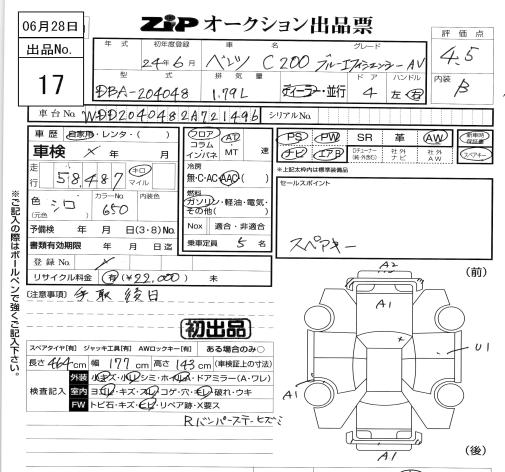 06月28日
出品No.
17
ZIP オークション出品票
評価点
4.5
内装
B
年式 初年度登録 車名 グレード
24年6月 ベンツ C200 ブルーエフィシェンシー AV
型式 排気量 ドア ハンドル
DBA-204048 1.79L ディーラー・並行 4 左・右
車台No. WDD2040482A721496 シリアルNo.
車歴 自家用・レンタ・( )
車検 × 年 月
走行 58,487 キロ マイル
色(元色) シロ カラーNo. 650 内装色
予備検 年 月 日(3・8)No.
書類有効期限 年 月 日迄
登録No. ×
リサイクル料金 有(¥22,000) 未
フロア コラム インパネ AT・MT 速
冷房 無・C・AC・AAC
燃料 ガソリン・軽油・電気・その他( )
Nox 適合・非適合
乗車定員 5 名
PS PW SR 革 AW
ナビ エアB Dチューナー(純・外含む) 社外ナビ 社外AW
新車時保証書
スペアキー
*上記太枠内は標準装備品
セールスポイント
スペアキー
(注意事項) 手取 後日
初出品
スペアタイヤ[有] ジャッキ工具[有] AWロックキー[有] ある場合のみ○
長さ 464 cm 幅 177 cm 高さ 143 cm (車検証上の寸法)
検査記入
外装 小キズ・小凹・シミ・ホイルA・ドアミラー(A・ワレ)
室内 ヨゴレ・キズ・スレ・コゲ・穴・モレ・破れ・ウキ
FW トビ石・キズ・ヒビ・リペア跡・X要ス
Rバンパーステーヒズミ
※ご記入の際はボールペンで強くご記入下さい。
(前)
A2
A1
U1
A1
A1
(後)